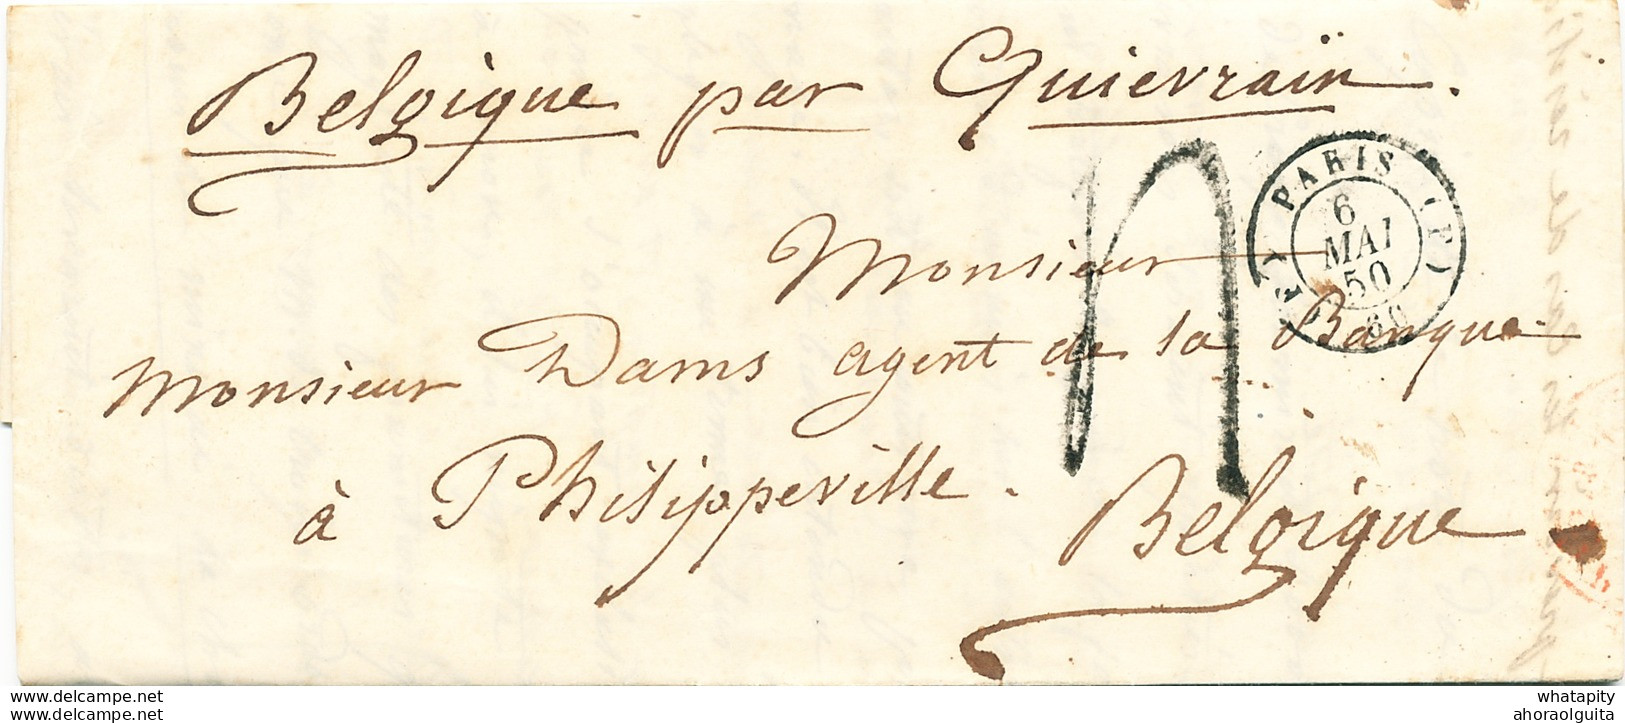 Belgique par Quievraïn.
PARIS (F)
6
MAI
50
60
Monsieur
Monsieur Dams agent de la Banque
à Philippeville.
Belgique
www.delcampe.net
www.delcampe.net
whatapity
ahoraolguita